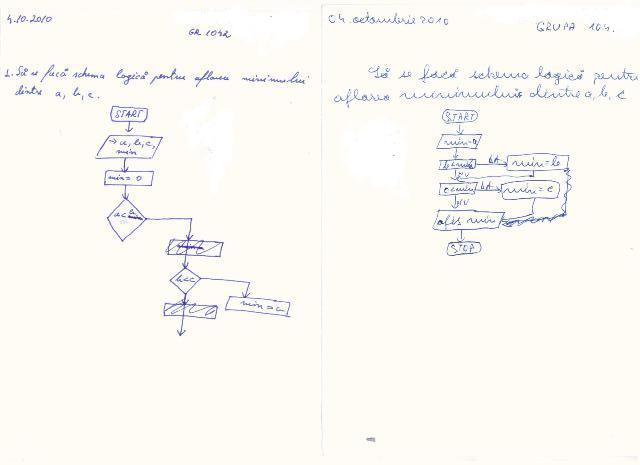 4.10.2010
GR 1042
1. Să se facă schema logică pentru aflarea minimului
dintre a, b, c.
START
→ a, b, c,
min
min = 0
a<
b<c
min = c
04. octombrie 2010
GRUPA 104.
Să se facă schema logică pentru
aflarea minimului dintre a, b, c
START
min=
b<min
DA
min = b
NU
c<min
DA
min = c
NU
afis min
STOP